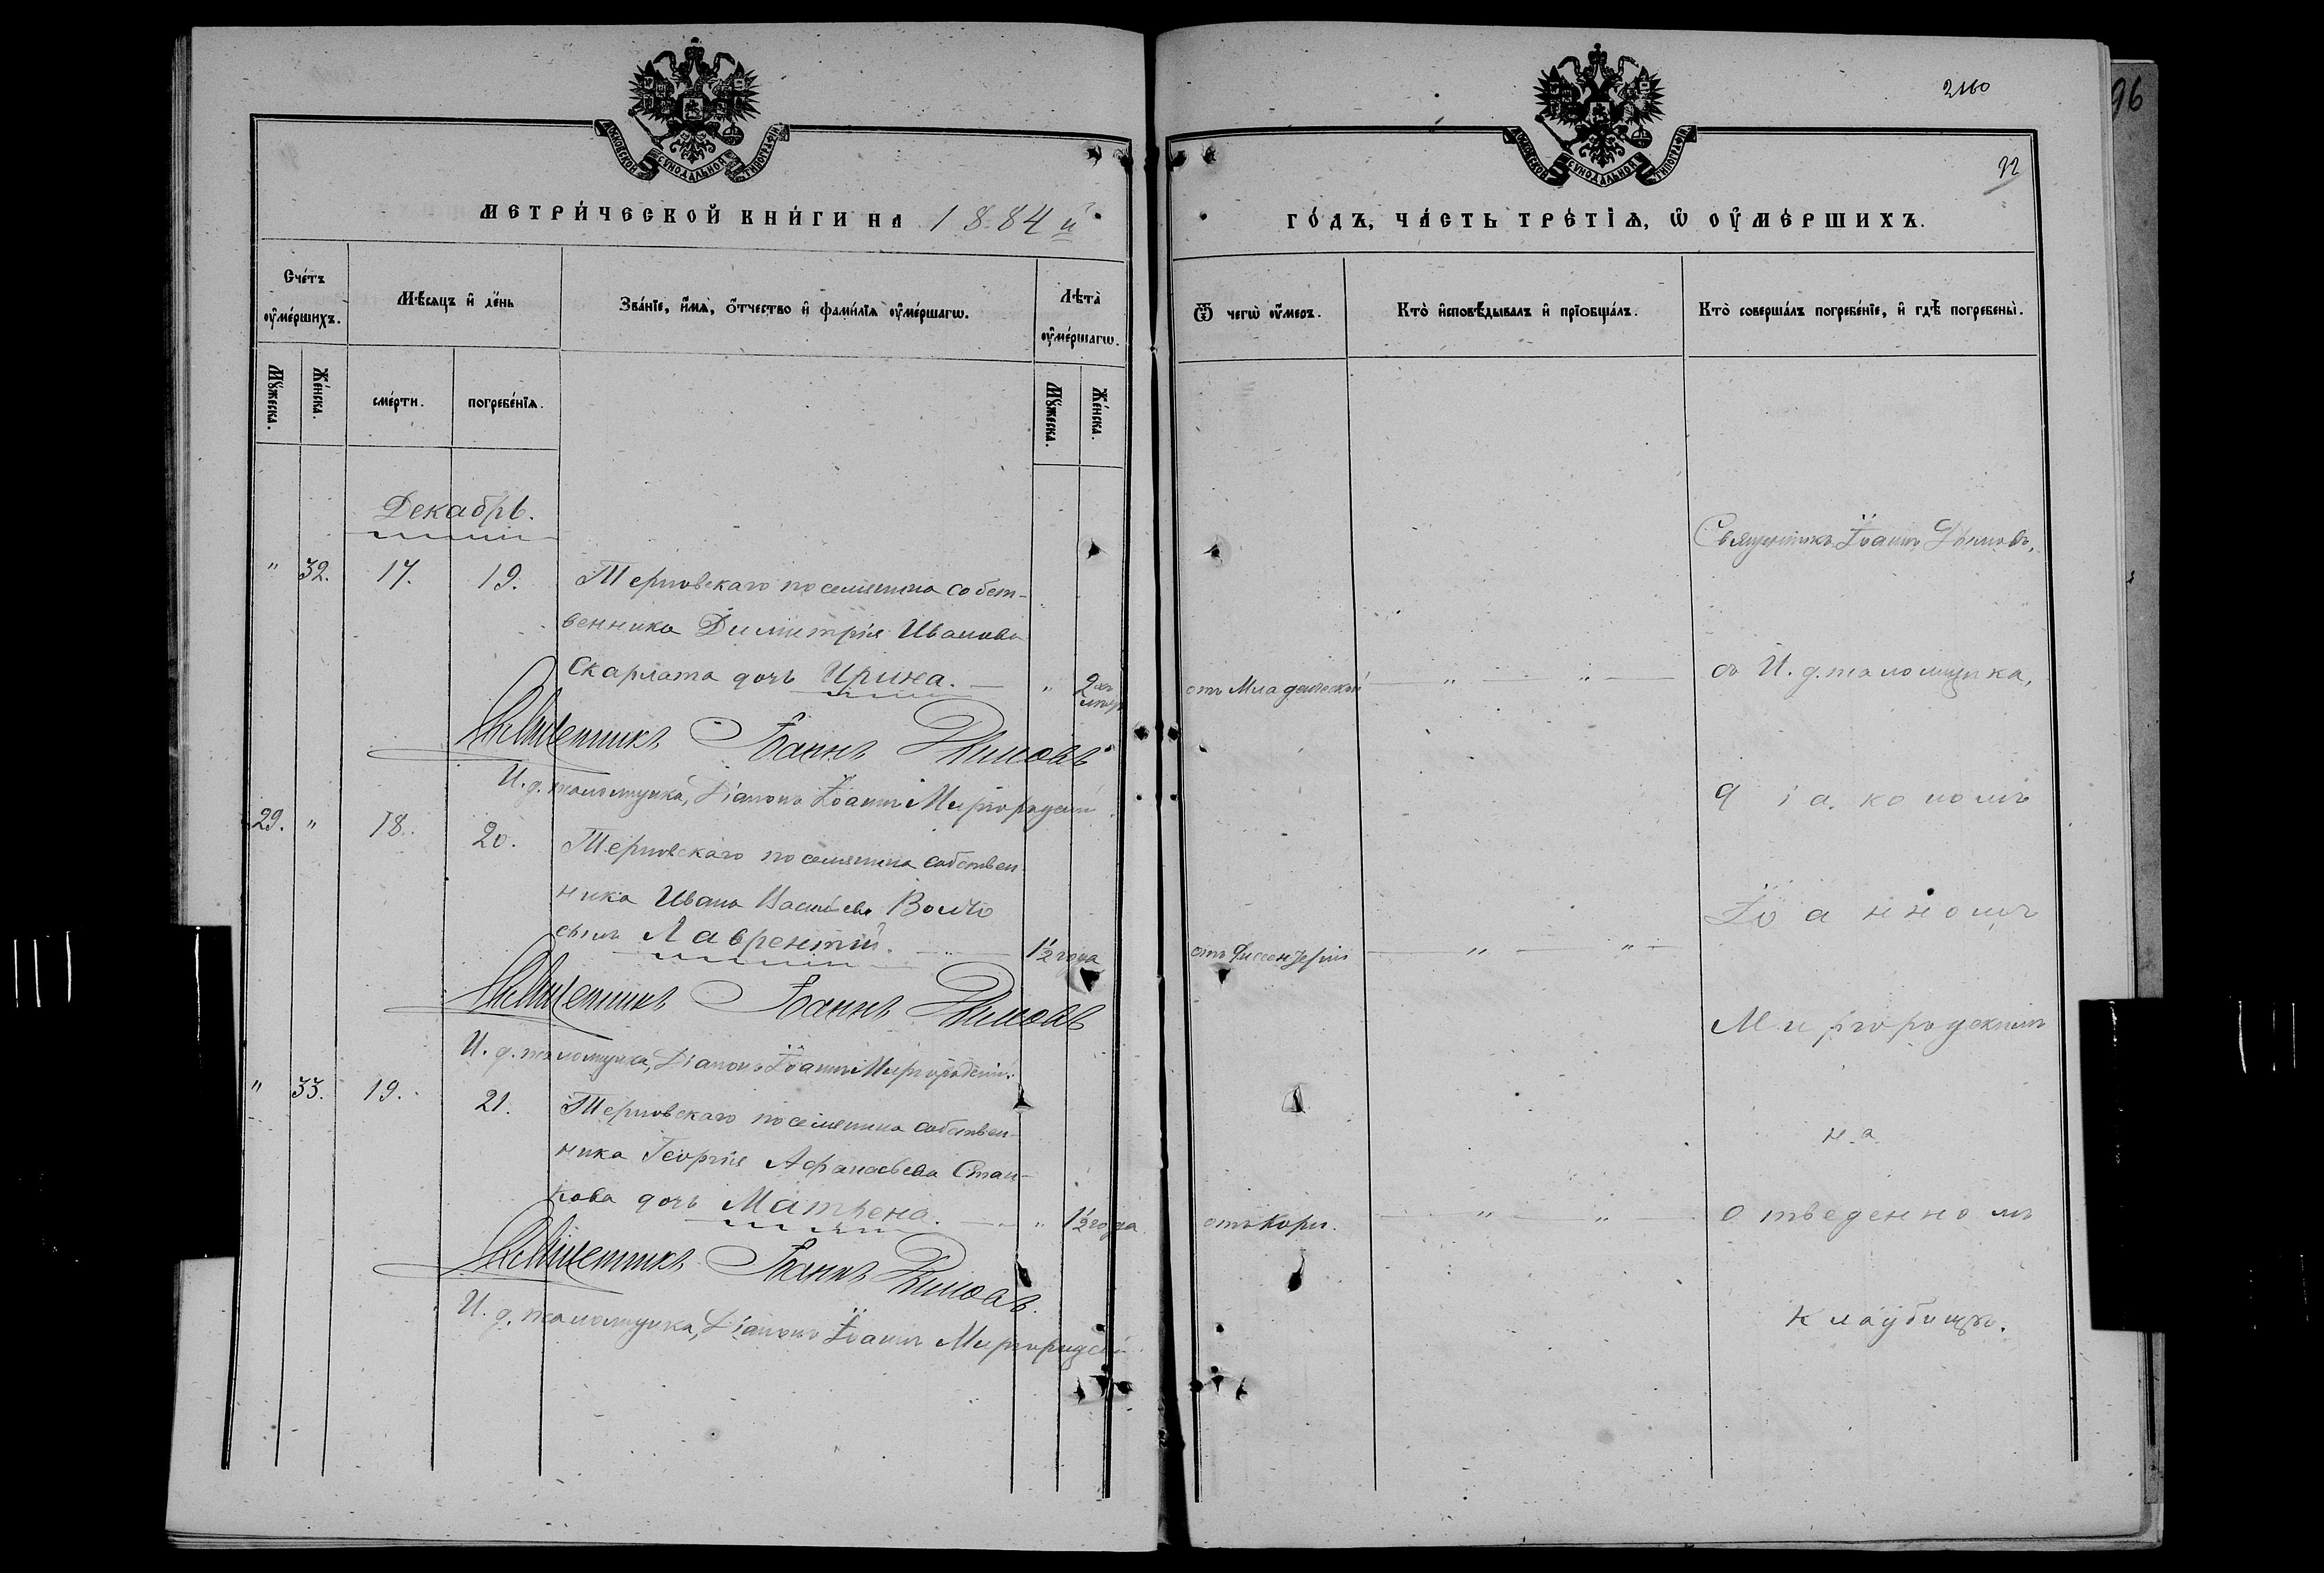 МОСКОВСКОЙ СѴНОДАЛЬНОЙ ТИПОГРАФІИ
МЕТРИ́ЧЕСКОЙ КНИ́ГИ НА 1884 й
Сче́тъ ᲂу҆ме́ршихъ.
Мꙋ́жеска.
Же́нска.
Мѣ́сяцъ и҆ де́нь
сме́рти.
погребе́нїѧ.
Зва́нїе, и҆́мѧ, ѻ҆́тчество и҆ фами́лїѧ ᲂу҆ме́ршагѡ.
Лѣта̀ ᲂу҆ме́ршагѡ.
Мꙋ́жеска.
Же́нска.
Декабрь.
" 32. 17. 19. Терновскаго поселянина собст-
венника Димитрія Иванова
Скарлата дочь Ирина. — " 2хъ лѣтъ
Священникъ Іоаннъ Димовъ
И. д. псаломщика, Діаконъ Іоаннъ Миргородскій
29. " 18. 20. Терновскаго поселянина собствен
ника Ивана Васильева Волчо
сынъ Лаврентій. — 1½ года
Священникъ Іоаннъ Димовъ
И. д. псаломщика, Діаконъ Іоаннъ Миргородскій.
" 33. 19. 21. Терновскаго поселянина собствен-
ника Георгія Афанасьева Стан-
кова дочь Матрена. — " 1½ года
Священникъ Іоаннъ Димовъ.
И. д. псаломщика, Діаконъ Іоаннъ Миргородскій
2160
96
92
МОСКОВСКОЙ СѴНОДАЛЬНОЙ ТИПОГРАФІИ
ГО́ДЪ, ЧА́СТЬ ТРЕ́ТІѦ, Ѡ҆ ОУ҆МЕ́РШИХЪ.
Ѿ чегѡ̀ ᲂу҆́меръ.
Кто̀ и҆сповѣ́дывалъ и҆ прїѡбща́лъ.
Кто̀ соверша́лъ погребе́нїе, и҆ гдѣ̀ погребены̀.
Священникъ Іоаннъ Димовъ,
отъ Младенческой — " — " — съ И. д. псаломщика,
діакономъ
Іоанномъ
отъ Диссентеріи — " — " —
Миргородскимъ
на
отъ кори. — " — " — отведенномъ
кладбищѣ.